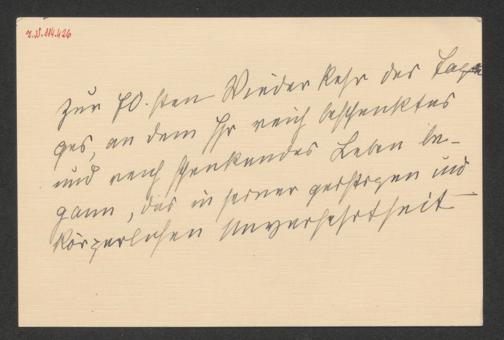 J.N. 114.426
Zur 70.sten Wiederkehr des Ta-
ges, an dem Ihr reich beschenktes
und reich schenkendes Leben be-
gann, das in seiner geistigen und
körperlichen Unversehrtheit